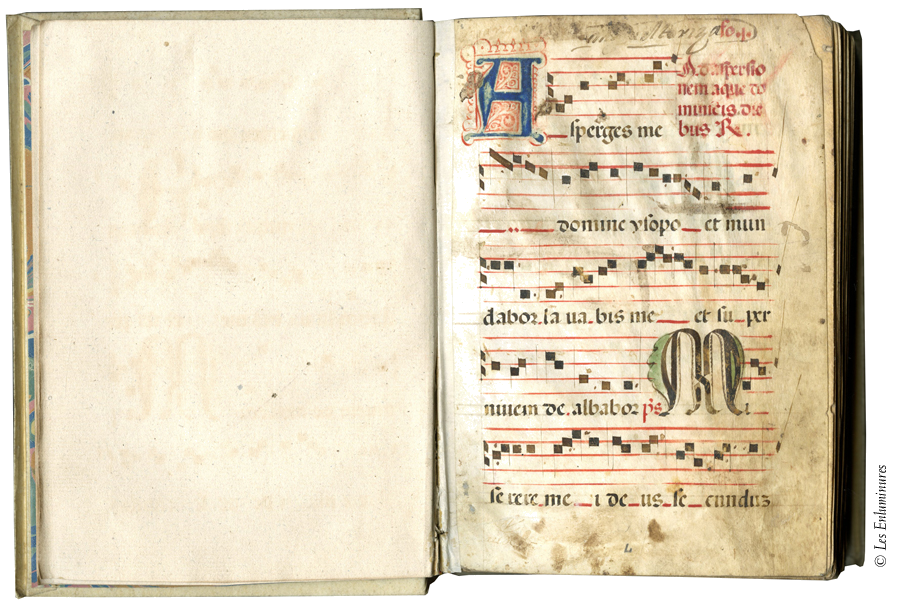 fo. j.
Ad aspersio
nem aque do
minicis die
bus R.
Asperges me
domine ysopo et mun
dabor la va bis me et su per
nivem de albabor ps M i
se rere me i de us se cunduz
© Les Enluminures